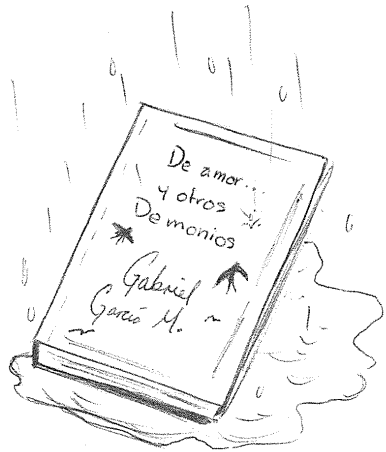 De amor...
y otros
Demonios
Gabriel
García M.